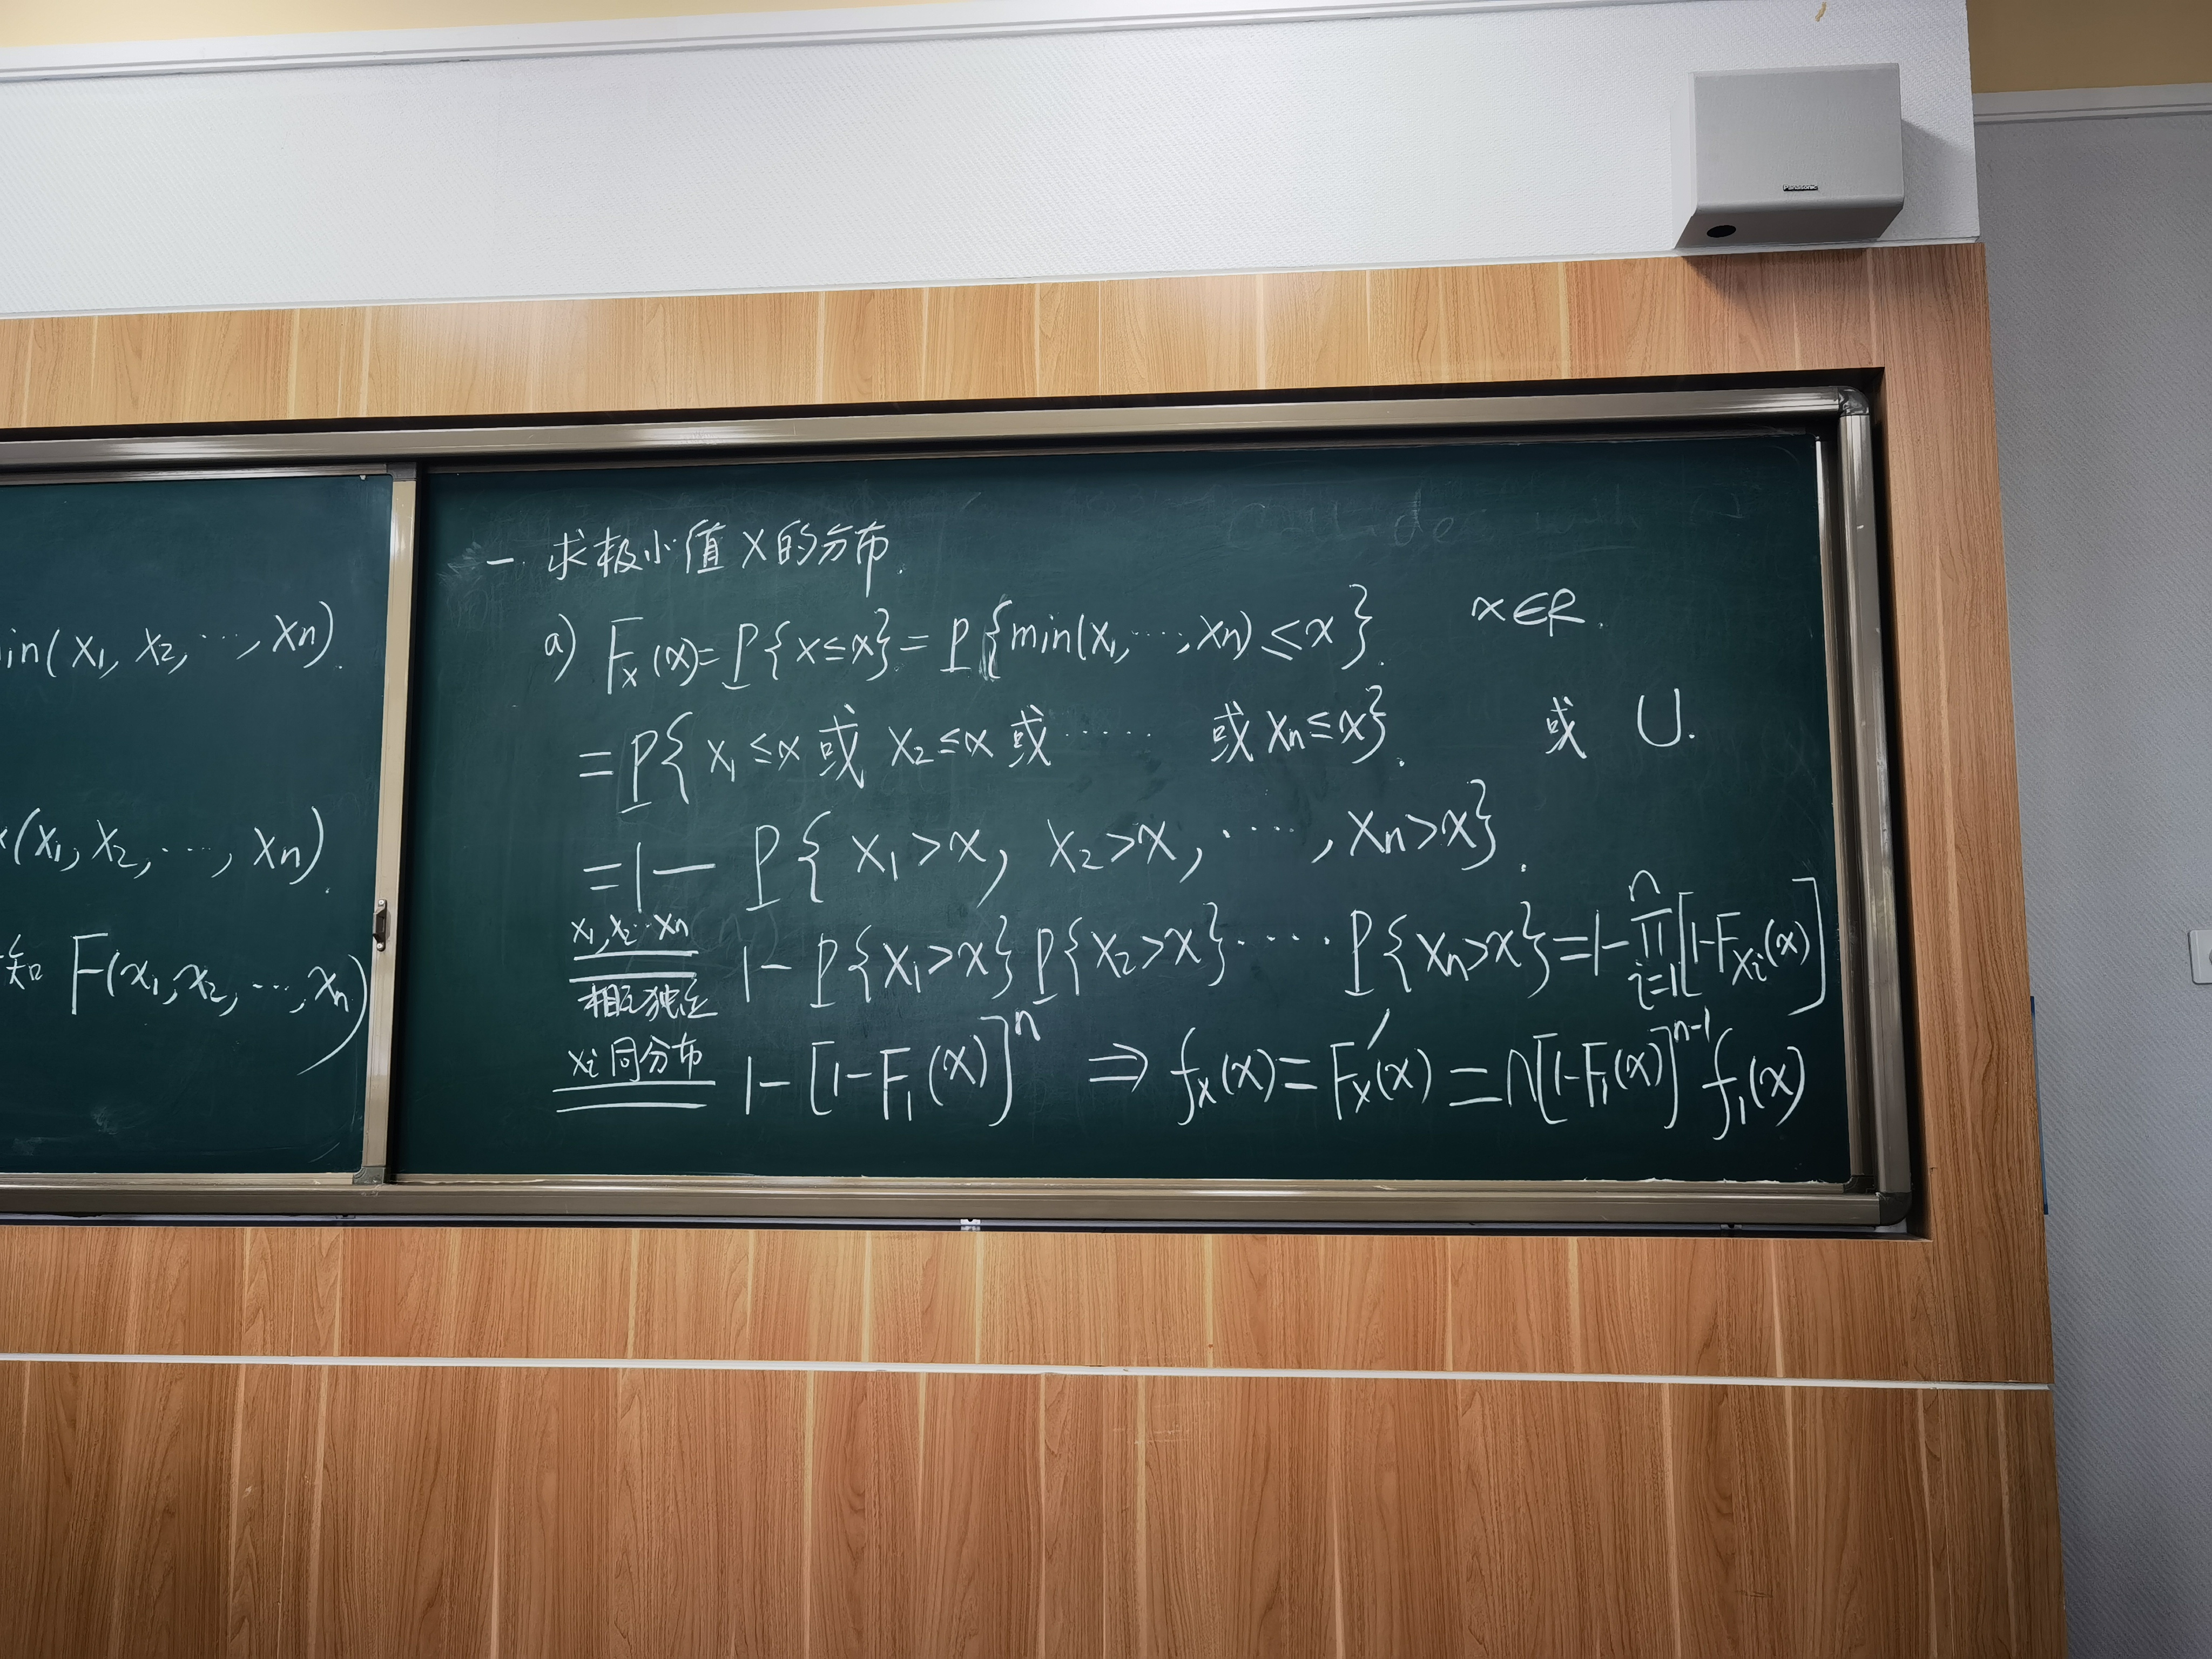 Panasonic
in(x₁, x₂, ⋯, xₙ).
(x₁, x₂, ⋯, xₙ).
知 F(x₁, x₂, ⋯, xₙ)
一. 求极小值X的分布.
a) F_X(x) = P{X≤x} = P{min(x₁, ⋯, xₙ) ≤ x}. x∈R.
= P{x₁≤x 或 x₂≤x 或 ⋯⋯ 或 xₙ≤x}. 或 ∪.
= 1 − P{x₁>x, x₂>x, ⋯, xₙ>x}.
x₁,x₂⋯xₙ
相互独立
1 − P{x₁>x}P{x₂>x}⋯⋯P{xₙ>x} = 1 − ∏ⁿᵢ₌₁[1−F_{Xi}(x)]
xi 同分布
1 − [1−F₁(x)]ⁿ ⇒ f_X(x) = F_X′(x) = n[1−F₁(x)]ⁿ⁻¹f₁(x)